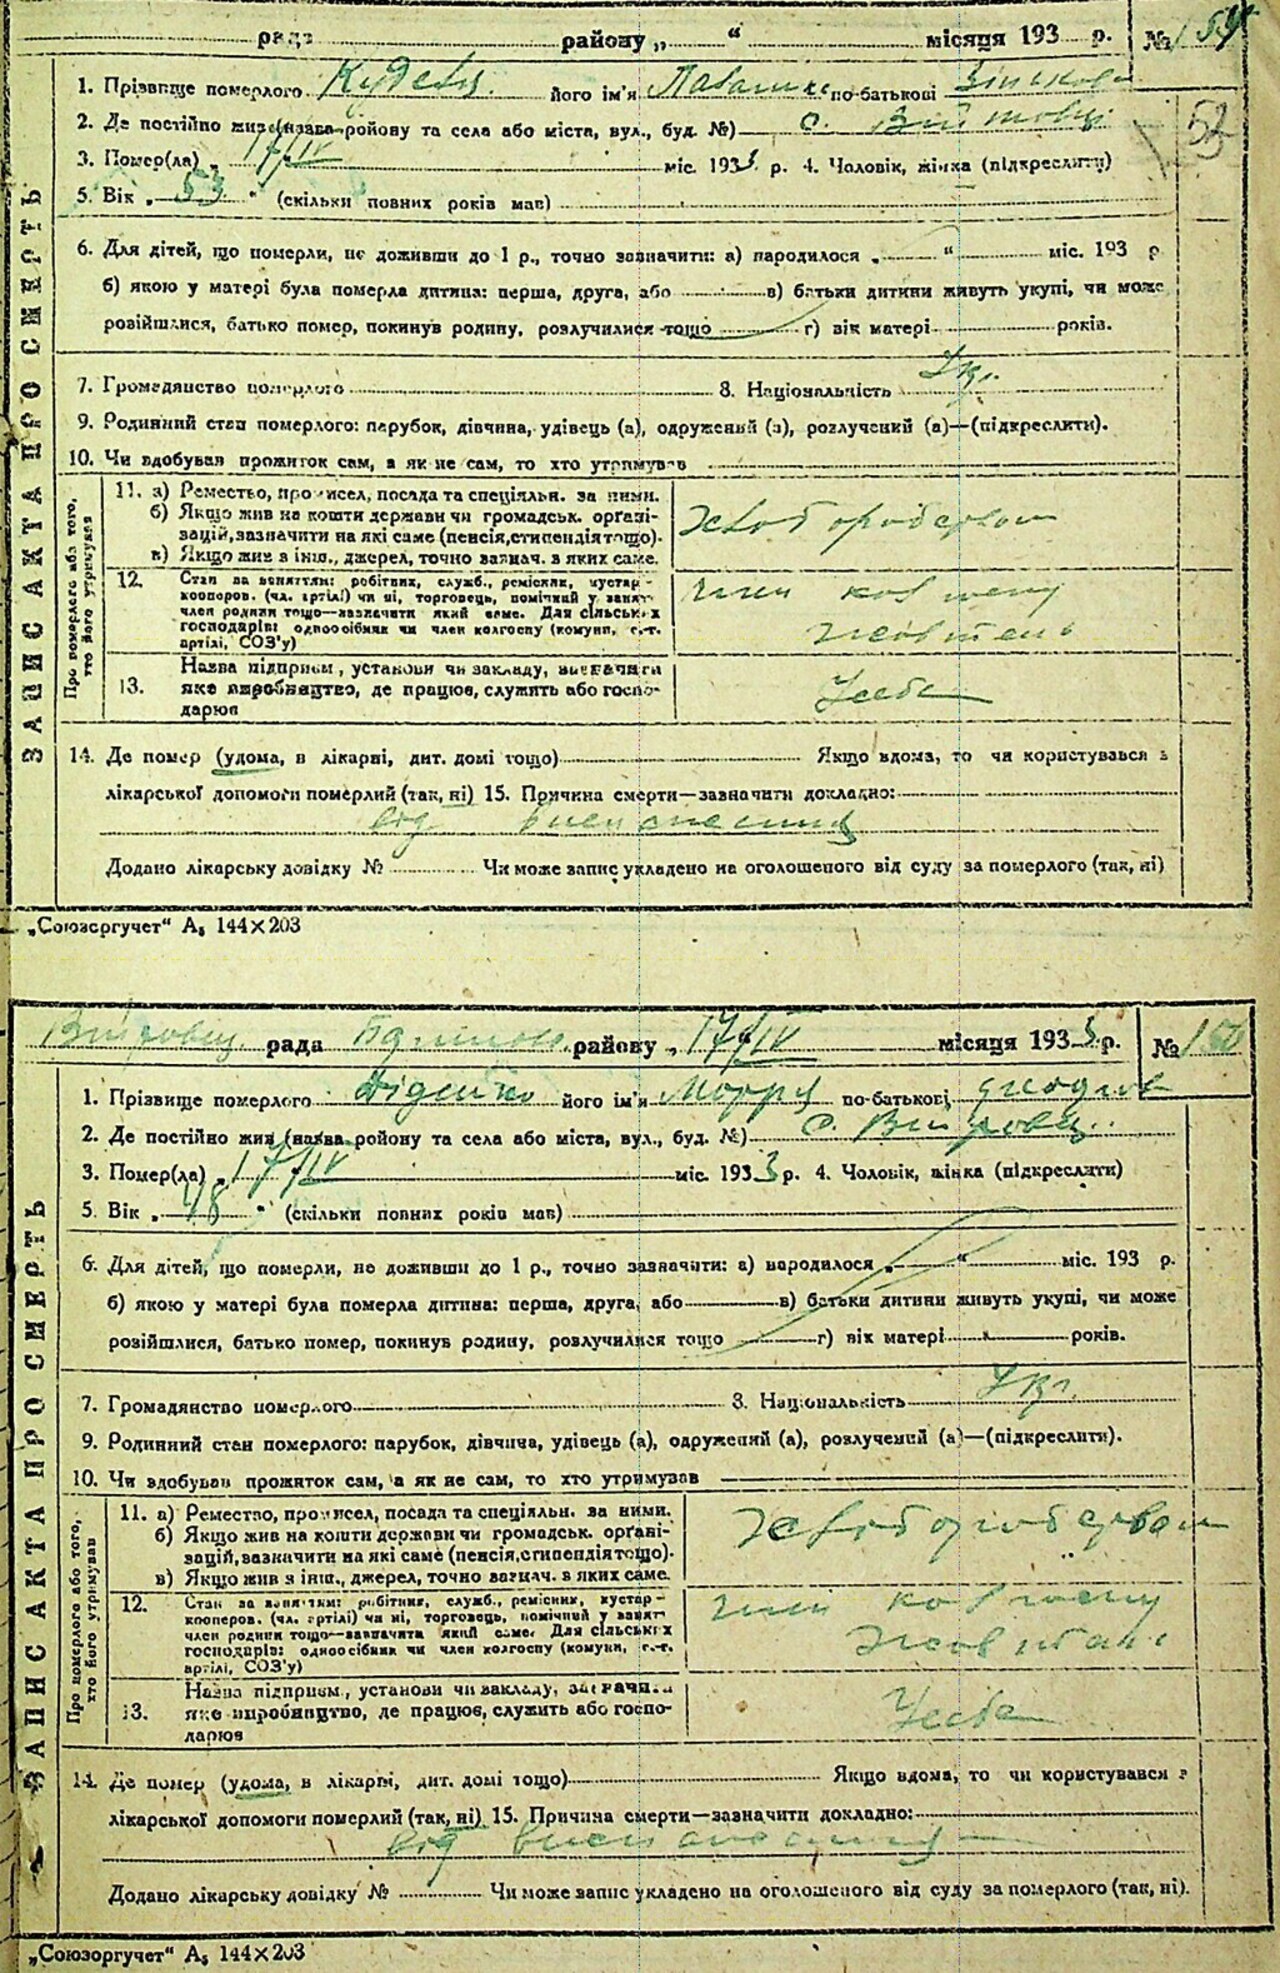 рада району „ “ місяця 193 р. №
1. Прізвище померлого його ім'я по-батькові
2. Де постійно жив (назва району та села або міста, вул., буд. №) с.
3. Помер(ла) „ 17/IV міс. 1933 р. 4. Чоловік, жінка (підкреслити)
53
5. Вік „ 53 “ (скільки повних років мав)
6. Для дітей, що померли, не доживши до 1 р., точно зазначити: а) народилося „ “ міс. 193 р
б) якою у матері була померла дитина: перша, друга, або в) батьки дитини живуть укупі, чи може
розійшлися, батько помер, покинув родину, розлучилися тощо г) вік матері років.
7. Громадянство померлого 8. Національність Укр.
9. Родинний стан померлого: парубок, дівчина, удівець (а), одружений (а), розлучений (а)—(підкреслити).
10. Чи здобував прожиток сам, а як не сам, то хто утримував
ЗАПИС АКТА ПРО СМЕРТЬ
Про померлого або того, хто його утримував
11. а) Ремество, промисел, посада та спеціяльн. за ними.
б) Якщо жив на кошти держави чи громадськ. органі-
зацій, зазначити на які саме (пенсія, стипендія тощо).
в) Якщо жив з інш., джерел, точно зазнач. в яких саме.
Хлібороб
12. Стан за заняттям: робітник, служб., ремісник, кустар-
кооперов. (чл. артілі) чи ні, торговець, помічний у занят.
член родини тощо—зазначити який саме. Для сільських
господарів: одноосібник чи член колгоспу (комуни, с.-г.
артілі, СОЗ'у)
член
13. Назва підприєм., установи чи закладу, зазначити
яке виробництво, де працює, служить або госпо-
дарює
14. Де помер (удома, в лікарні, дит. домі тощо) Якщо вдома, то чи користувався з
лікарської допомоги померлий (так, ні) 15. Причина смерти—зазначити докладно:
від
Додано лікарську довідку № Чи може запис укладено на оголошеного від суду за померлого (так, ні)
„Союзоргучет“ А₅ 144×203
рада району „ 17/IV місяця 1933 р. № 160
1. Прізвище померлого Діденко його ім'я по-батькові
2. Де постійно жив (назва району та села або міста, вул., буд. №) с.
3. Помер(ла) „ 17/IV міс. 1933 р. 4. Чоловік, жінка (підкреслити)
5. Вік „ “ (скільки повних років мав)
6. Для дітей, що померли, не доживши до 1 р., точно зазначити: а) народилося „ “ міс. 193 р.
б) якою у матері була померла дитина: перша, друга, або в) батьки дитини живуть укупі, чи може
розійшлися, батько помер, покинув родину, розлучилися тощо г) вік матері років.
7. Громадянство померлого 8. Національність Укр.
9. Родинний стан померлого: парубок, дівчина, удівець (а), одружений (а), розлучений (а)—(підкреслити).
10. Чи здобував прожиток сам, а як не сам, то хто утримував
ЗАПИС АКТА ПРО СМЕРТЬ
Про померлого або того, хто його утримував
11. а) Ремество, промисел, посада та спеціяльн. за ними.
б) Якщо жив на кошти держави чи громадськ. органі-
зацій, зазначити на які саме (пенсія, стипендія тощо).
в) Якщо жив з інш., джерел, точно зазнач. в яких саме.
12. Стан за заняттям: робітник, служб., ремісник, кустар-
кооперов. (чл. артілі) чи ні, торговець, помічний у занят.
член родини тощо—зазначити який саме. Для сільських
господарів: одноосібник чи член колгоспу (комуни, с.-г.
артілі, СОЗ'у)
член
13. Назва підприєм., установи чи закладу, зазначити
яке виробництво, де працює, служить або госпо-
дарює
14. Де помер (удома, в лікарні, дит. домі тощо) Якщо вдома, то чи користувався з
лікарської допомоги померлий (так, ні) 15. Причина смерти—зазначити докладно:
від
Додано лікарську довідку № Чи може запис укладено на оголошеного від суду за померлого (так, ні).
„Союзоргучет“ А₅ 144×203